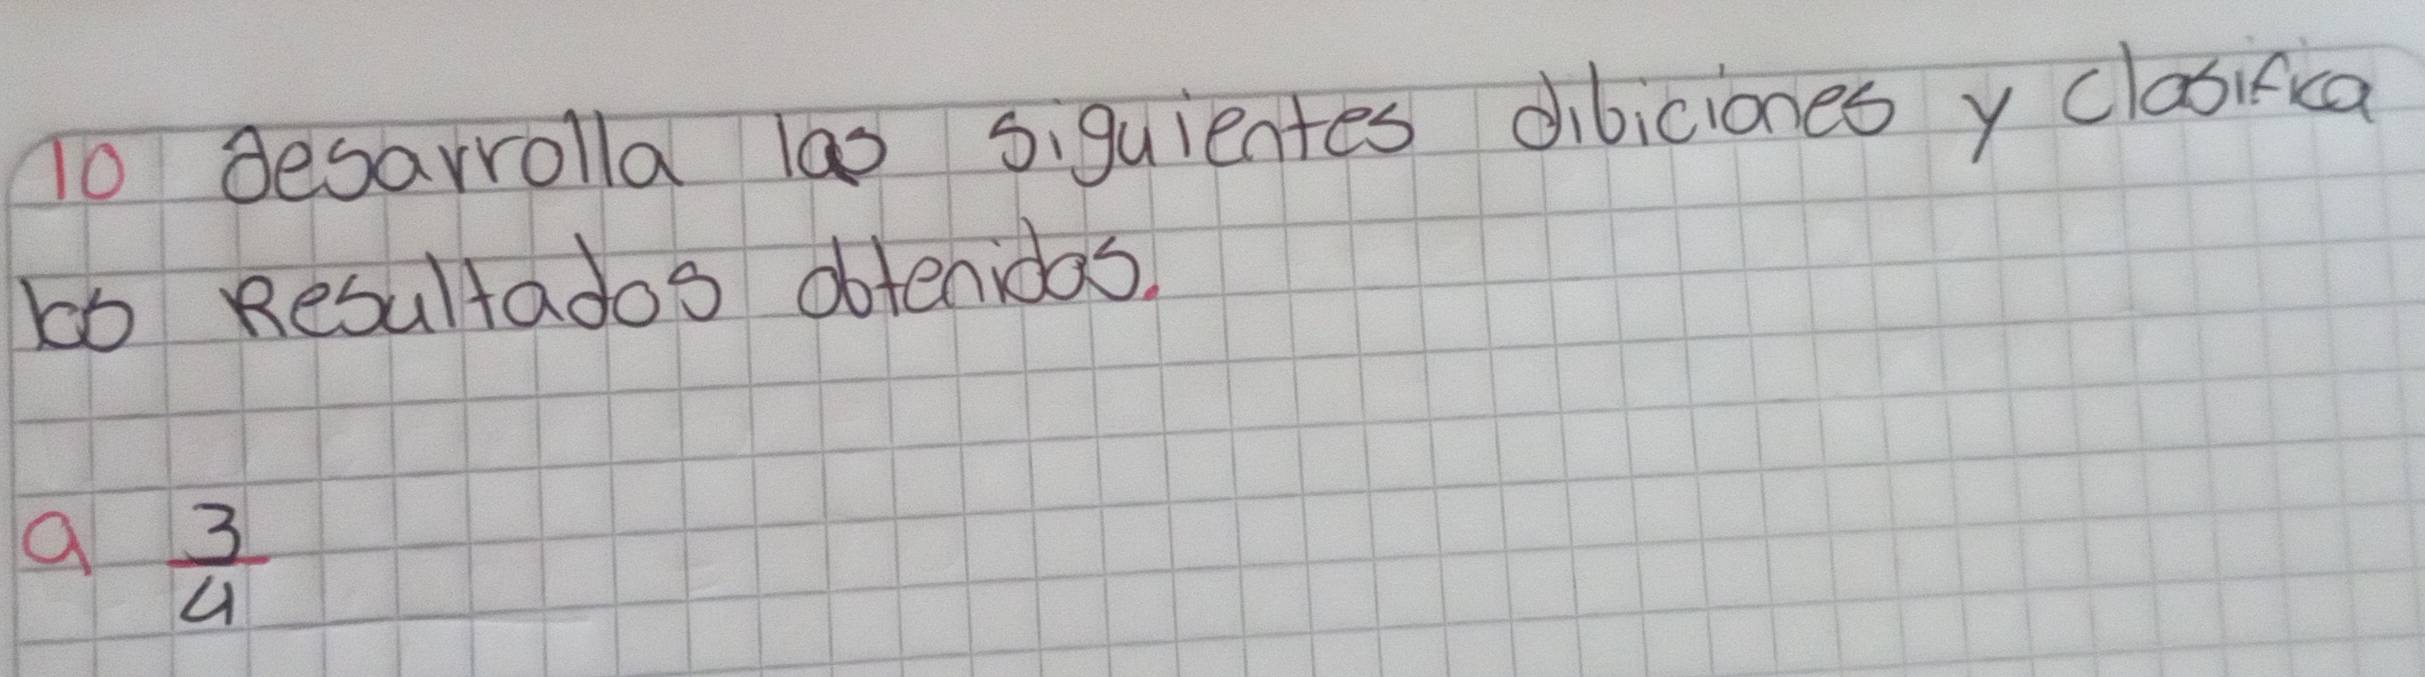 10 desarrolla las siguientes dibiciones y clasifica
los Resultados obtenidos.
a 3/4